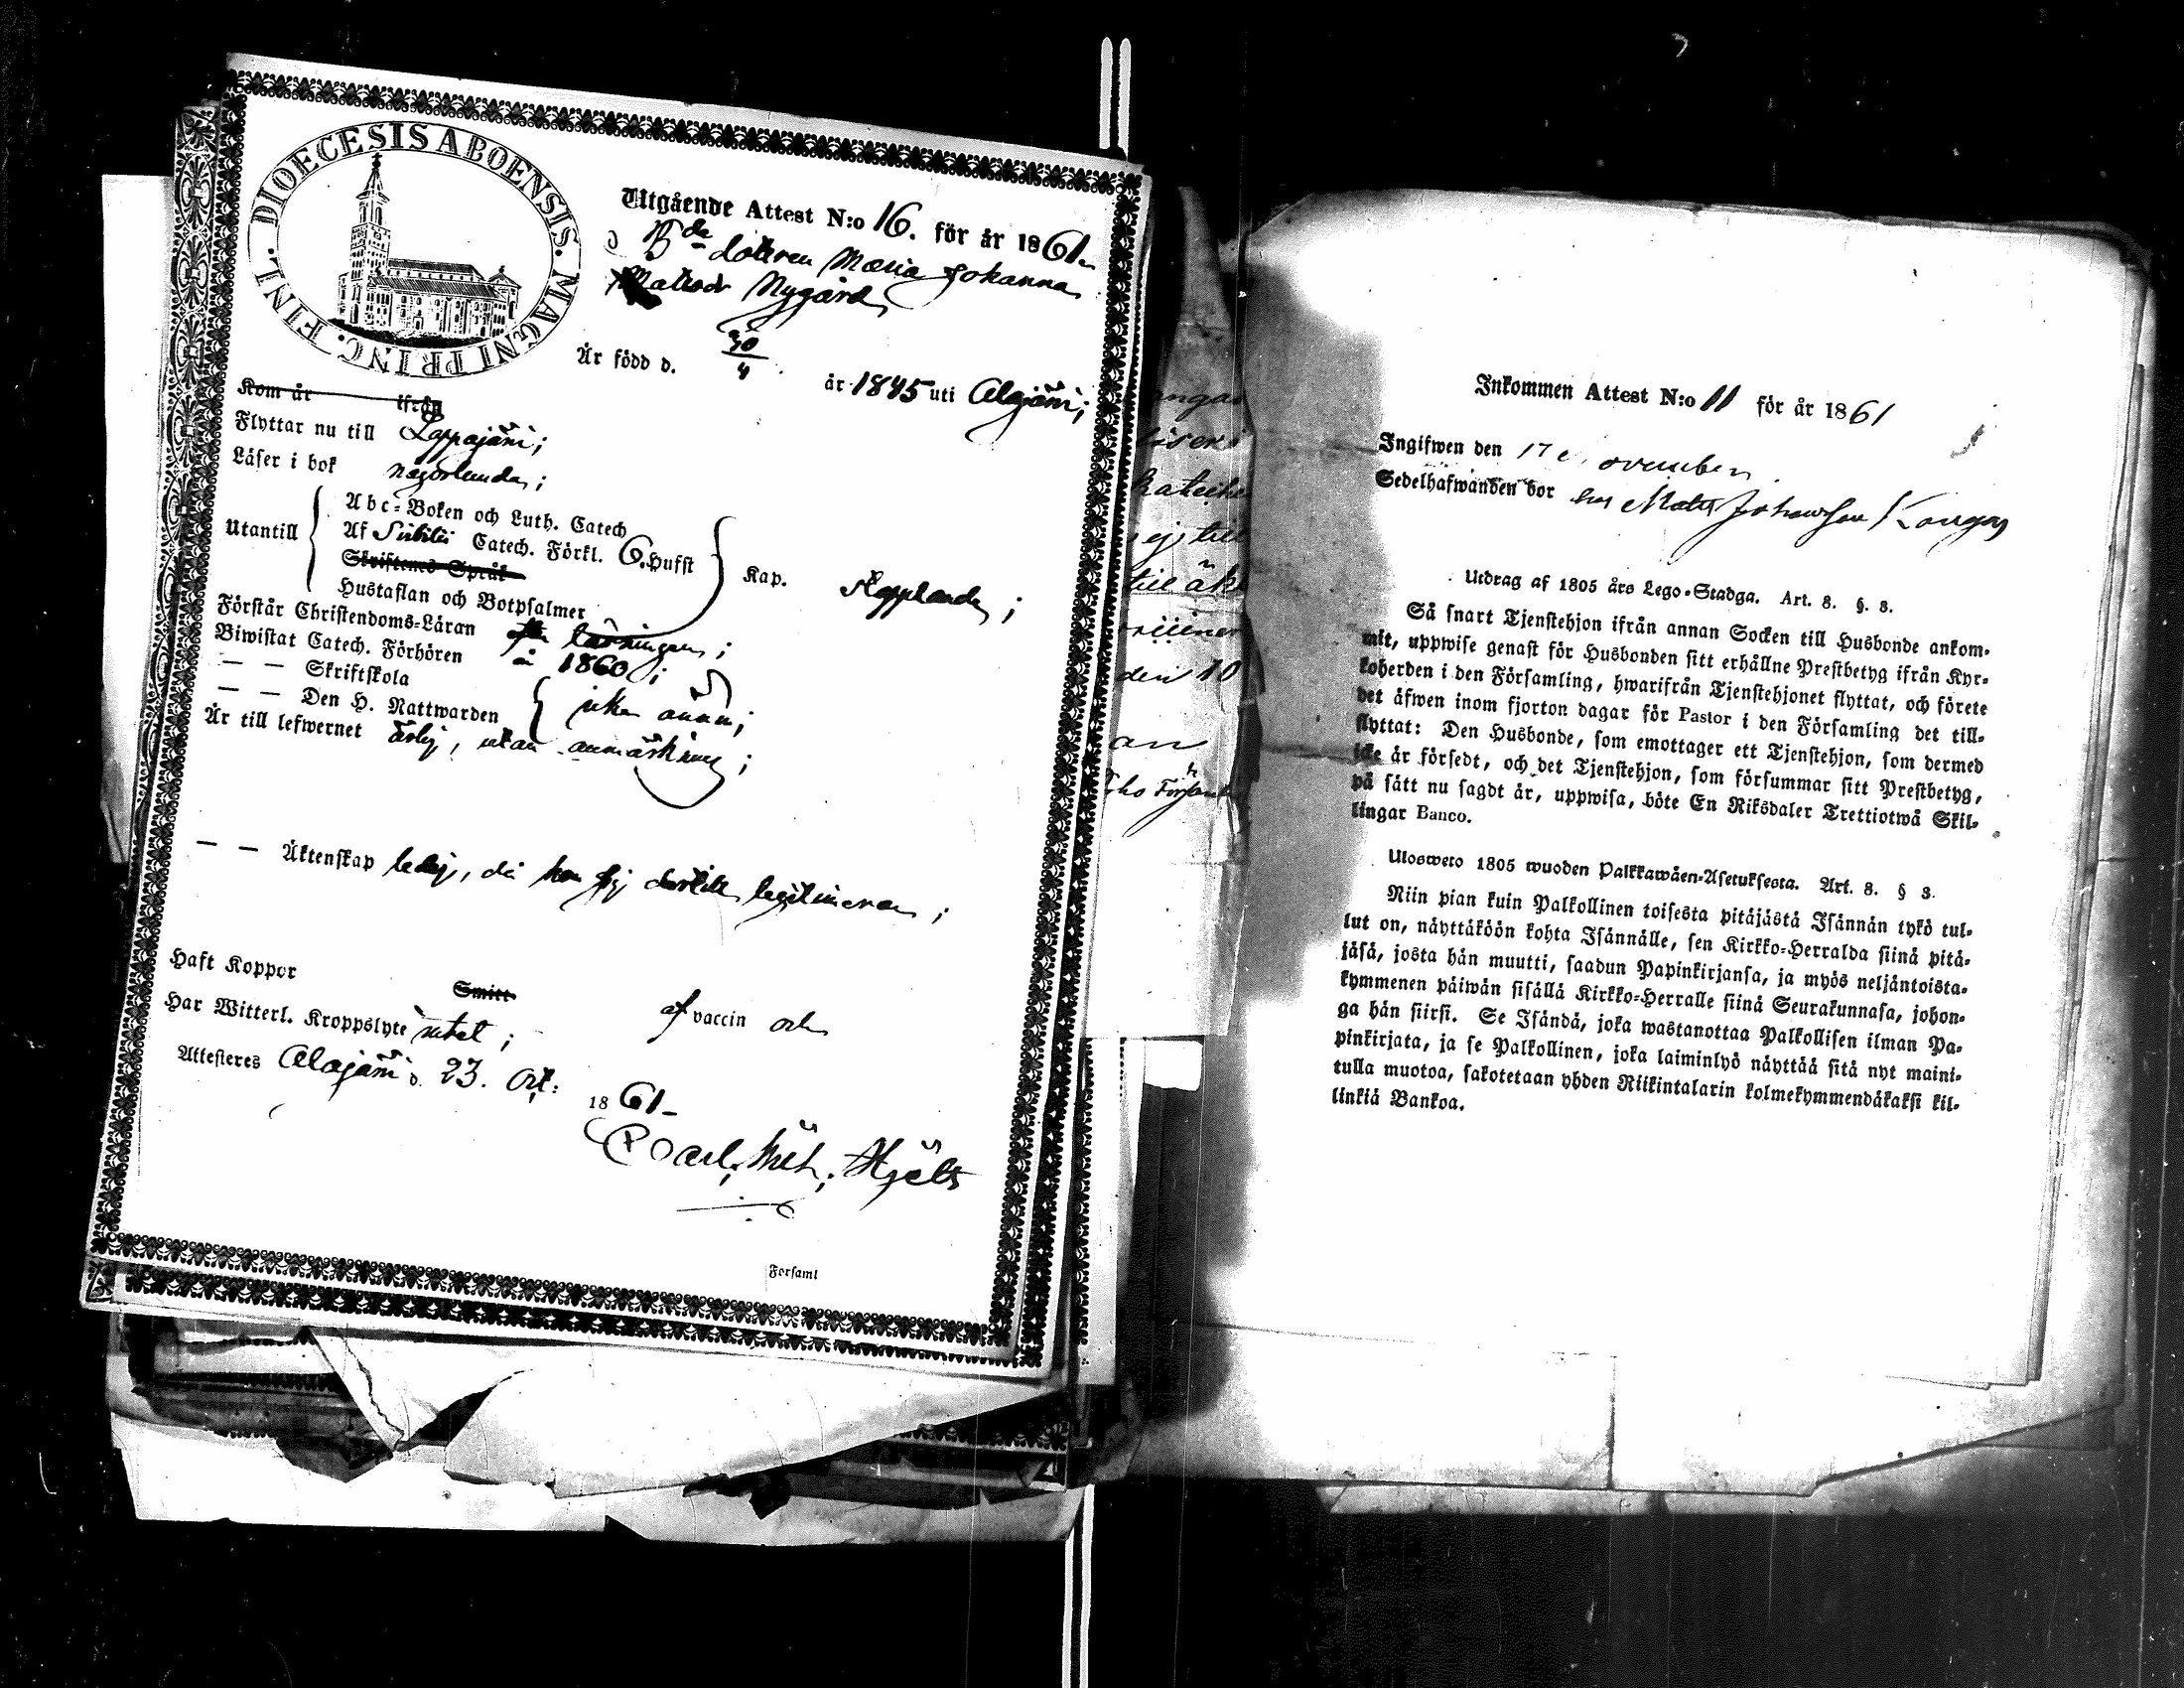 DIOECESIS ABOENSIS. MAGNI PRINC. FINL.
Utgående Attest N:o 16. för år 1861.
Bde dottren Maria Johanna
Matsdr Nygård
Är född d. 30/4 år 1845 uti Alajärvi;
Kom år ifrån
Flyttar nu till Lappajärvi;
Läser i bok någorlunda;
Utantill
Abc-Boken och Luth. Catech
Af Svebilii Catech. Förkl. 6. Hufst
Skriftenes Språk
Hustaflan och Botpsalmer
Kap.
Förstår Christendoms-Läran efter läsningen;
Biwistat Catech. Förhören år 1860;
— — Skriftskola
— — Den H. Nattwarden
icke ännu;
Är till lefwernet ärlig, utan anmärkning;
— — Äktenskap ledig, då hon sig legitimerar;
Haft Koppor Smitt af vaccin och
Har Witterl. Kroppslyte intet;
Attesteres Alajärvi d. 23. Oct: 1861
Carl. Wilh. Hjelt
Forsaml
Inkommen Attest N:o 11 för år 1861
Ingifwen den 17 ovember
Sedelhafwanden bor hos Matts Johansson Kangas
Utdrag af 1805 års Lego-Stadga. Art. 8. §. 3.
Så snart Tjenstehjon ifrån annan Socken till Husbonde ankom-
mit, uppwise genast för Husbonden sitt erhållne Prestbetyg ifrån Kyr-
koherden i den Församling, hwarifrån Tjenstehjonet flyttat, och förete
det äfwen inom fjorton dagar för Pastor i den Församling det till-
flyttat: Den Husbonde, som emottager ett Tjenstehjon, som dermed
icke är försedt, och det Tjenstehjon, som försummar sitt Prestbetyg,
på sätt nu sagdt är, uppwisa, böte En Riksdaler Trettiotwå Skil-
lingar Banco.
Ulosweto 1805 wuoden Palkkawäen-Asetuksesta. Art. 8. § 3.
Niin pian kuin Palkollinen toisesta pitäjästä Isännän tykö tul-
lut on, näyttäköön kohta Isännälle, sen Kirkko-Herralda siinä pitä-
jäsä, josta hän muutti, saadun Papinkirjansa, ja myös neljäntoista-
kymmenen päiwän sisällä Kirkko-Herralle siinä Seurakunnasa, johon-
ga hän siirsi. Se Isändä, joka wastanottaa Palkollisen ilman Pa-
pinkirjata, ja se Palkollinen, joka laiminlyö näyttää sitä nyt maini-
tulla muotoa, sakotetaan yhden Riikintalarin kolmekymmendäkaksi kil-
linkiä Bankoa.